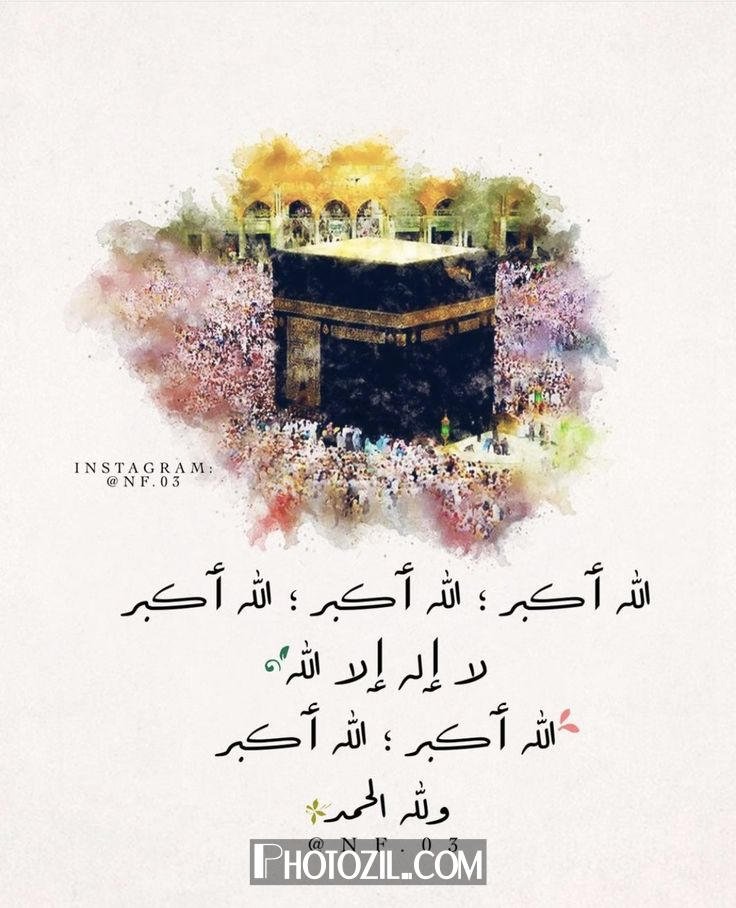 INSTAGRAM:
@NF.03
الله أكبر ؛ الله أكبر ؛ الله أكبر
لا إله إلا الله
الله أكبر ؛ الله أكبر
ولله الحمد
@NF.03
PHOTOZIL.COM